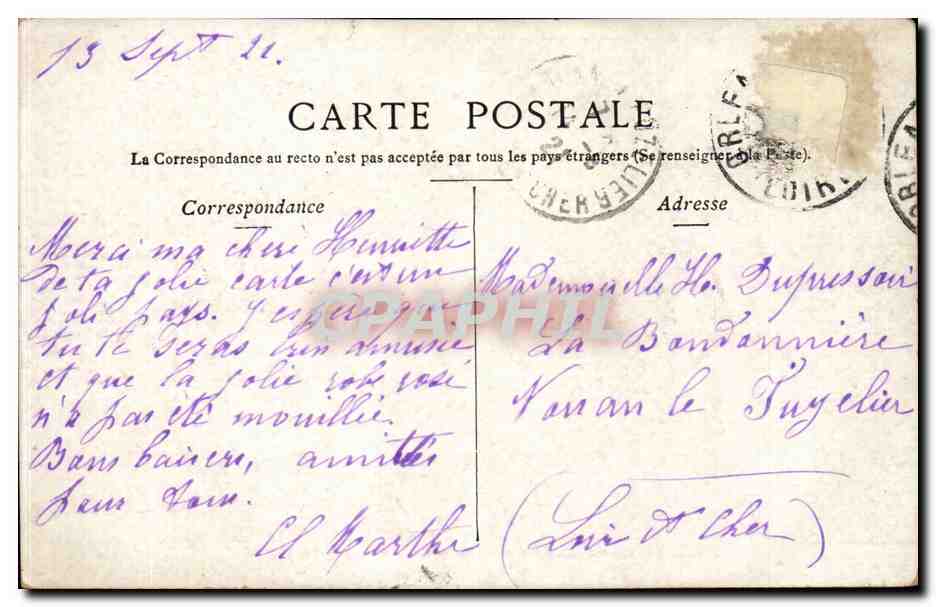 13 Sept 21.
CARTE POSTALE
La Correspondance au recto n'est pas acceptée par tous les pays étrangers (Se renseigner à la Poste).
Correspondance
Merci ma cheri Henriette
de ta jolie carte c'est un
joli pays. J'espere que
tu te seras bien amusée
et que la jolie robe rose
n'a pas été mouillée.
Bons baisers, amitiés
pour tous.
Cl Marthe
Adresse
Mademoiselle He. Dupressoir
La Bondonnière
Nouan le Fuzelier
(Loir et Cher)
CPAPHIL
ORLEA
LOIRET
ORLEA